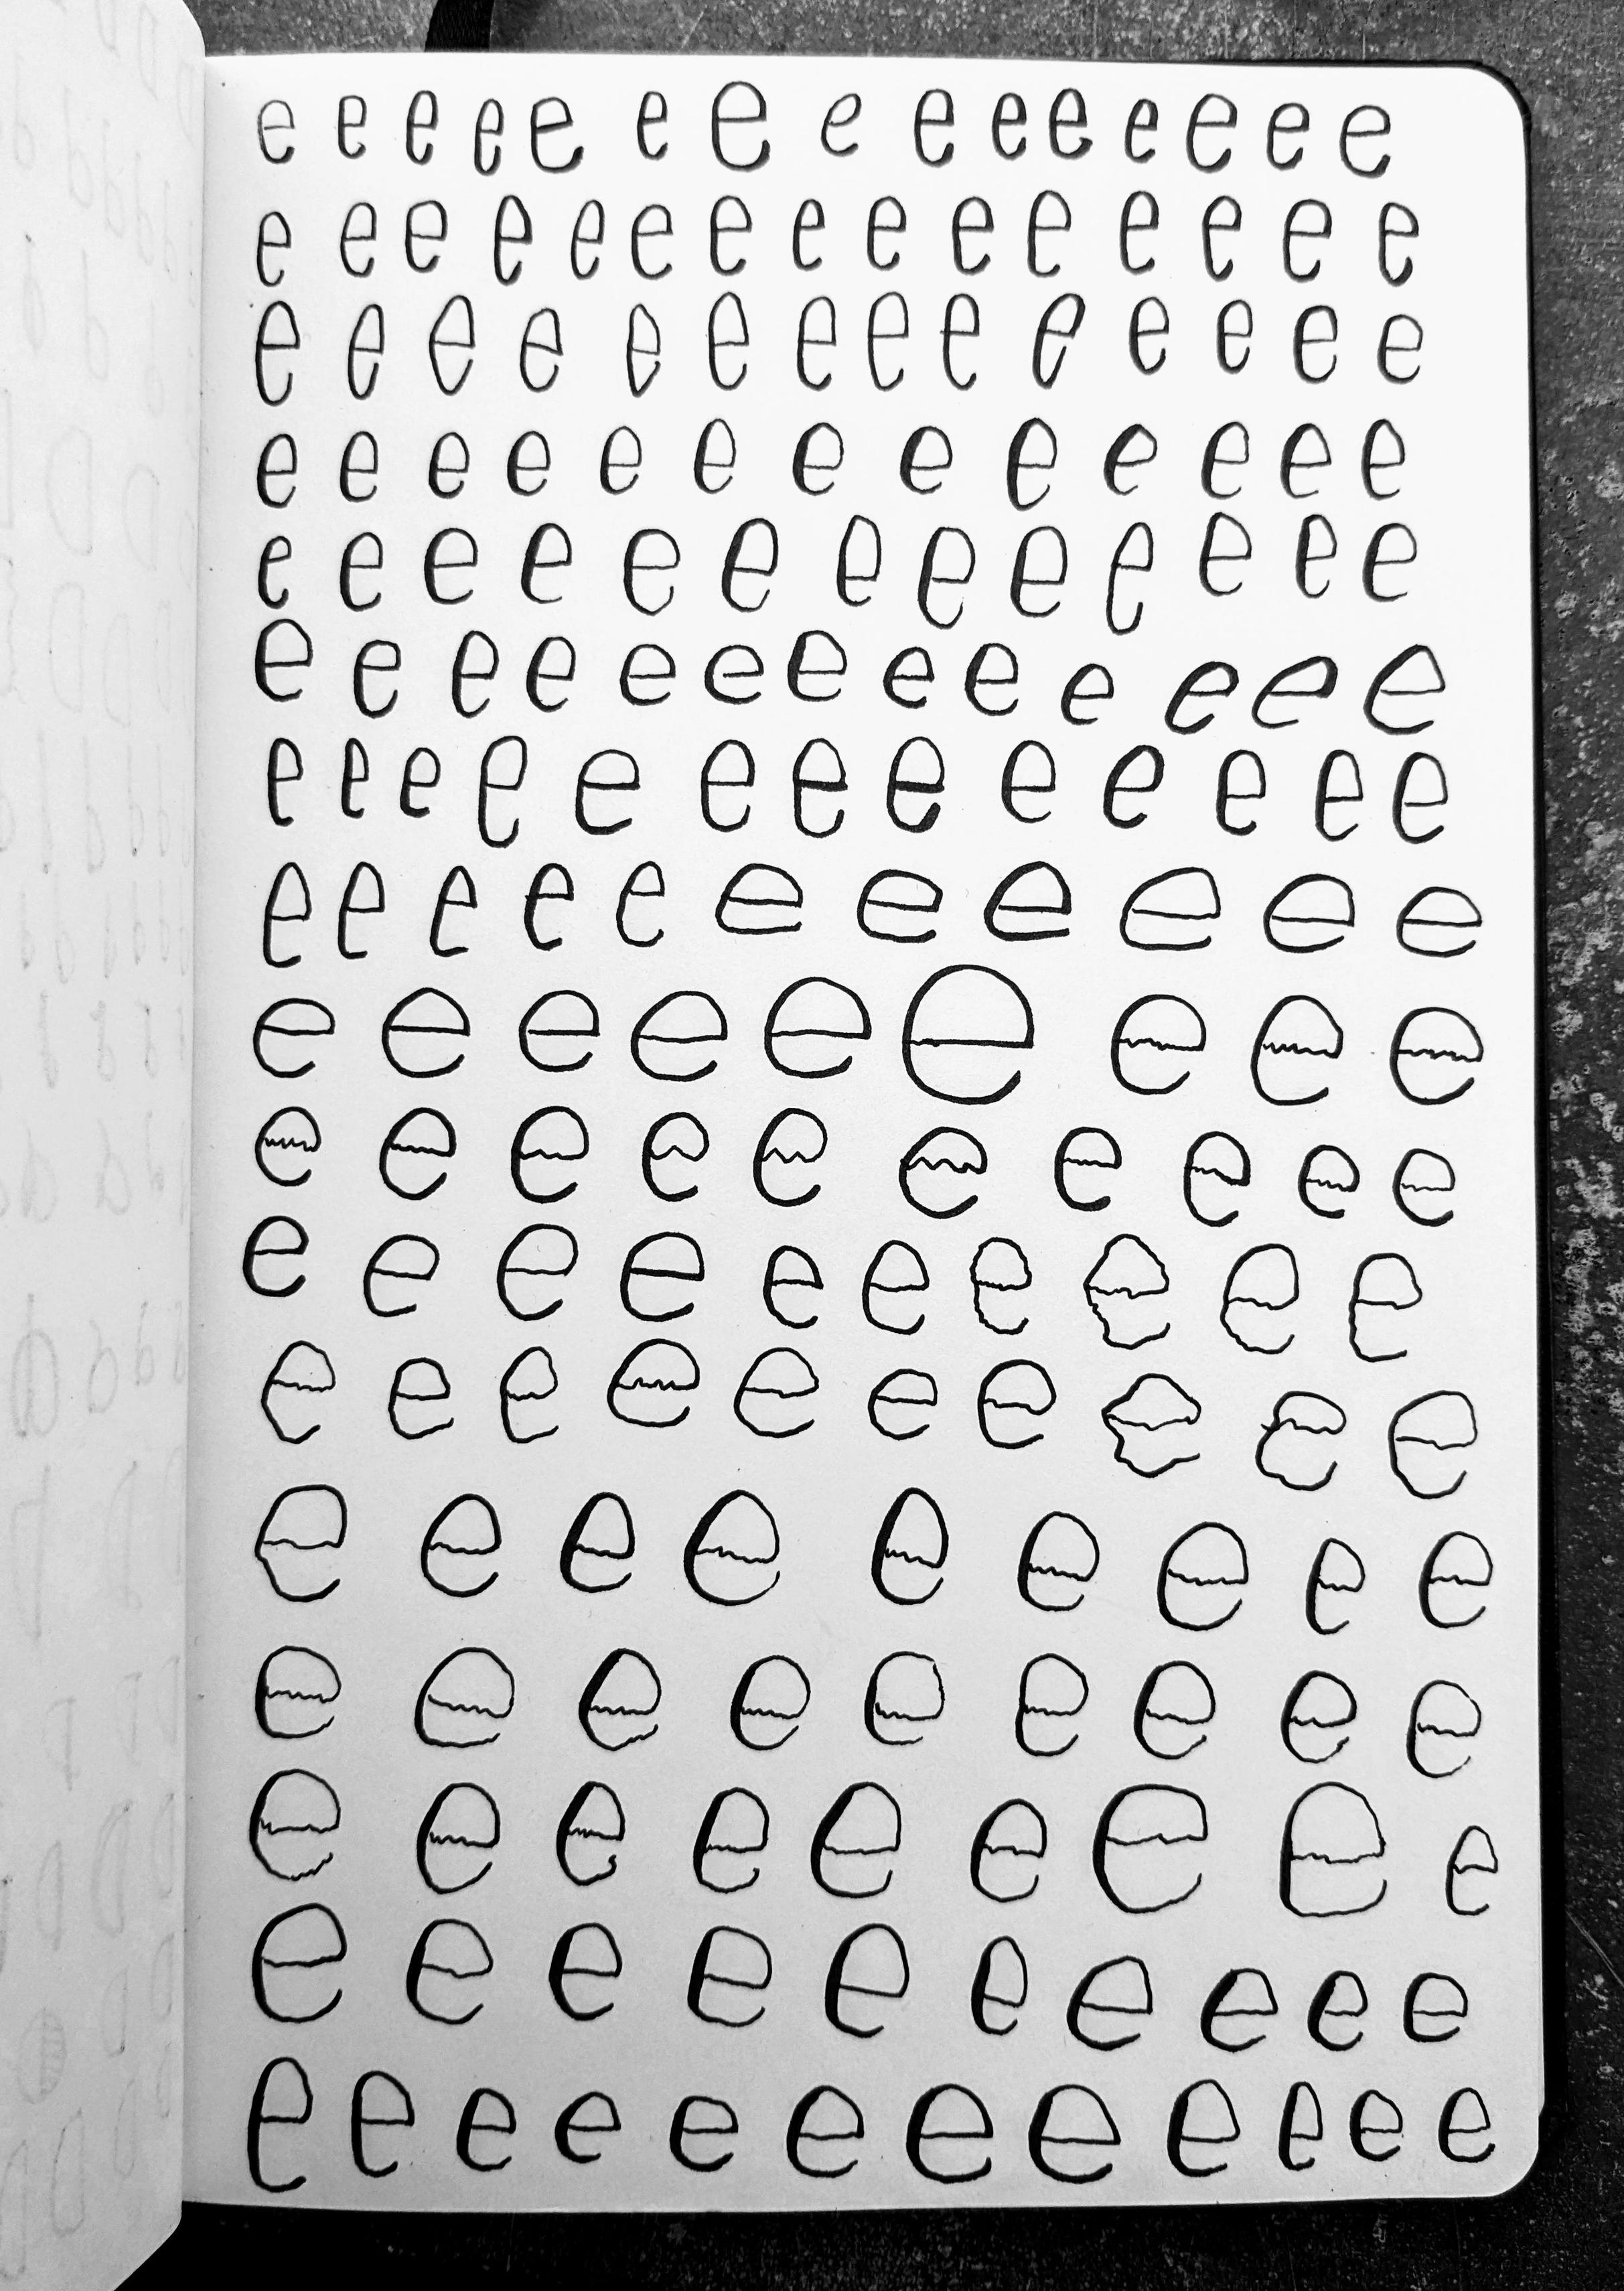 e e e e e e e e e e e e e e e
e e e e e e e e e e e e e e e
e e e e e e e e e e e e e e
e e e e e e e e e e e e e
e e e e e e e e e e e e e
e e e e e e e e e e e e e
e e e e e e e e e e e e e
e e e e e e e e e e e
e e e e e e e e e
e e e e e e e e e e
e e e e e e e e e e
e e e e e e e e e e
e e e e e e e e e
e e e e e e e e e
e e e e e e e e e
e e e e e e e e e e
e e e e e e e e e e e e